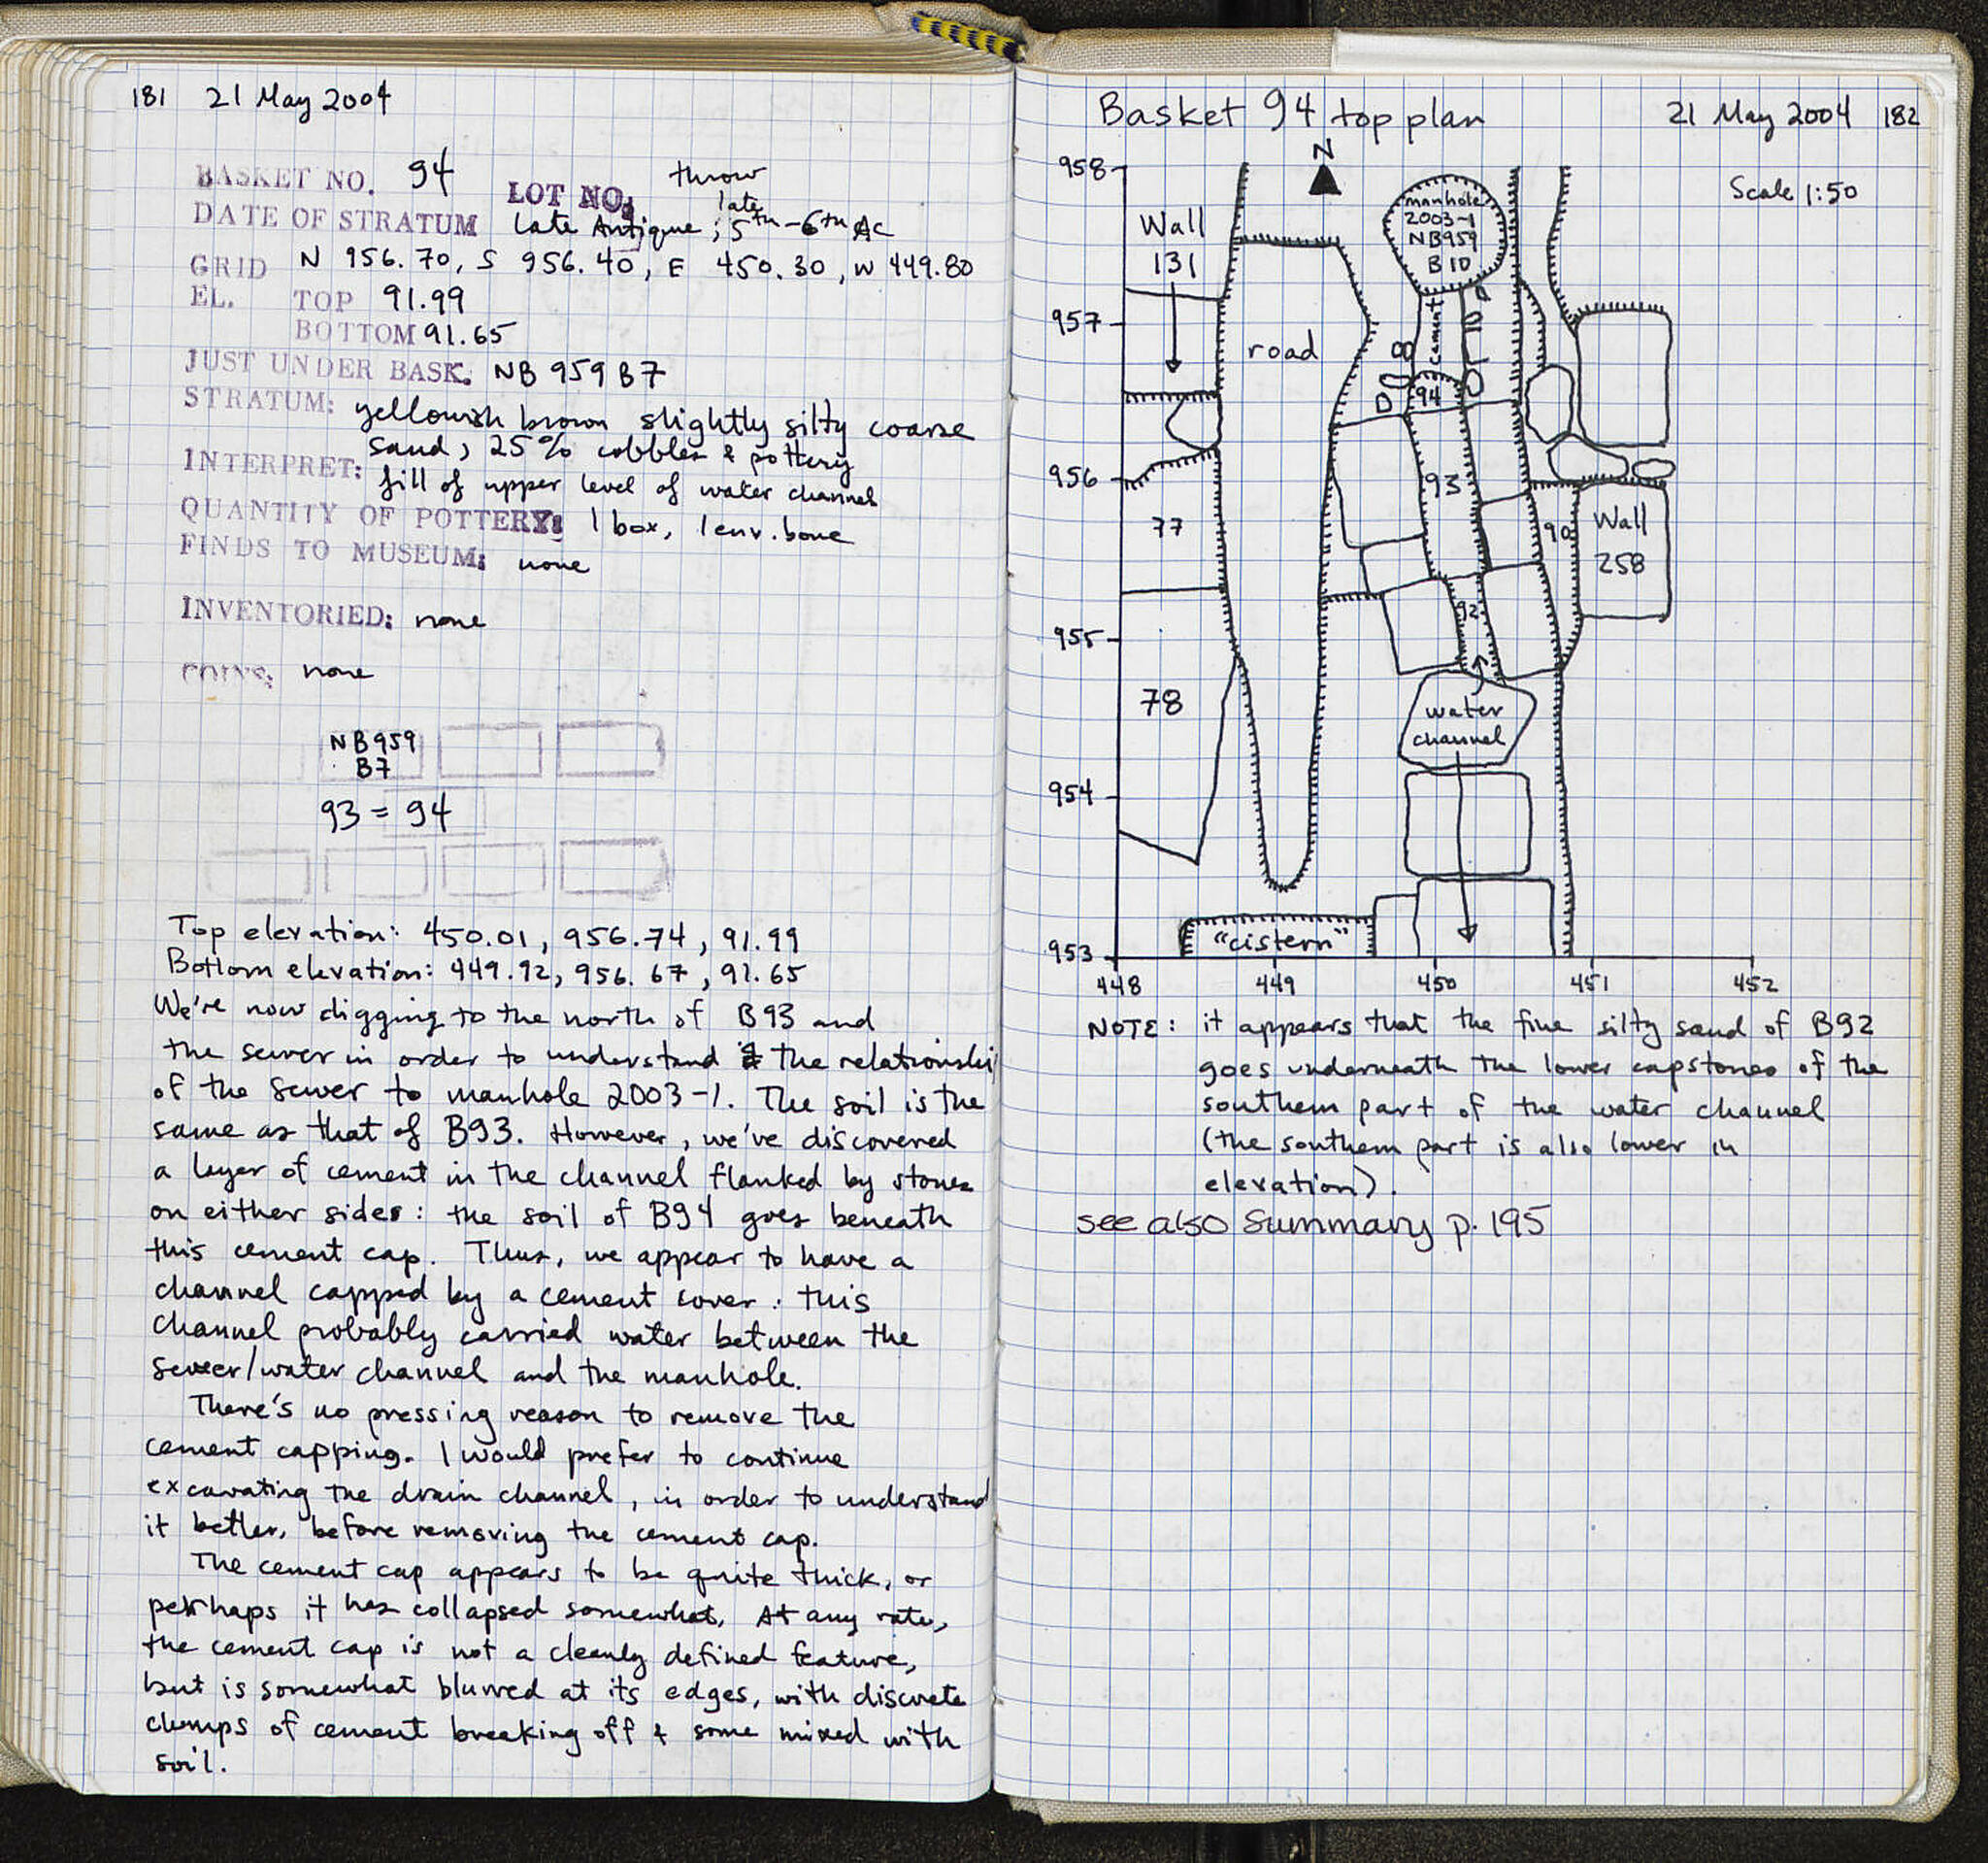 181 21 May 2004
BASKET NO. 94 LOT NO. throw
DATE OF STRATUM Late Antique; late 5th-6th AC
GRID N 956.70, S 956.40, E 450.30, W 449.80
EL. TOP 91.99
BOTTOM 91.65
JUST UNDER BASK. NB 959 B7
STRATUM: yellowish brown slightly silty coarse
sand, 25% cobbles & pottery
INTERPRET: fill of upper level of water channel
QUANTITY OF POTTERY: 1 box, 1 env. bone
FINDS TO MUSEUM: none
INVENTORIED: none
COINS: none
NB959
B7
93 = 94
Top elevation: 450.01, 956.74, 91.99
Bottom elevation: 449.92, 956.67, 91.65
We're now digging to the north of B93 and
the sewer in order to understand the relationship
of the sewer to manhole 2003-1. The soil is the
same as that of B93. However, we've discovered
a layer of cement in the channel flanked by stones
on either sides: the soil of B94 goes beneath
this cement cap. Thus, we appear to have a
channel capped by a cement cover: this
channel probably carried water between the
sewer/water channel and the manhole.
There's no pressing reason to remove the
cement capping. I would prefer to continue
excavating the drain channel, in order to understand
it better, before removing the cement cap.
The cement cap appears to be quite thick, or
perhaps it has collapsed somewhat. At any rate,
the cement cap is not a cleanly defined feature,
but is somewhat blurred at its edges, with discrete
clumps of cement breaking off & some mixed with
soil.
Basket 94 top plan 21 May 2004 182
N
Scale 1:50
958
957
956
955
954
953
448 449 450 451 452
Wall
131
manhole
2003-1
NB959
B10
road
cement
94
93
77
90
Wall
258
92
78
water
channel
"cistern"
NOTE: it appears that the fine silty sand of B92
goes underneath the lower capstones of the
southern part of the water channel
(the southern part is also lower in
elevation).
see also Summary p. 195